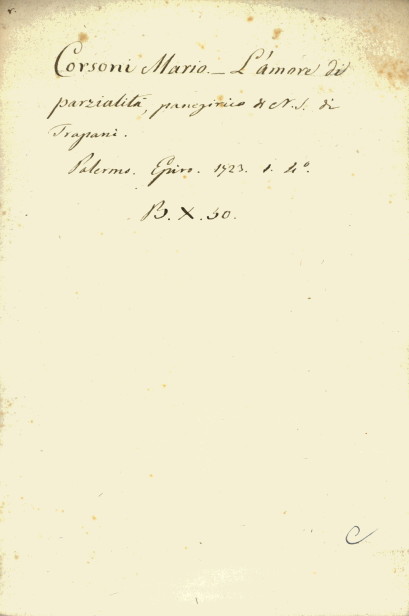 Corsoni Mario. _ L'amore di
parzialità, panegirico di N. S. di
Trapani.
Palermo. Epiro. 1723. 1. 4°.
B. X. 50.
C